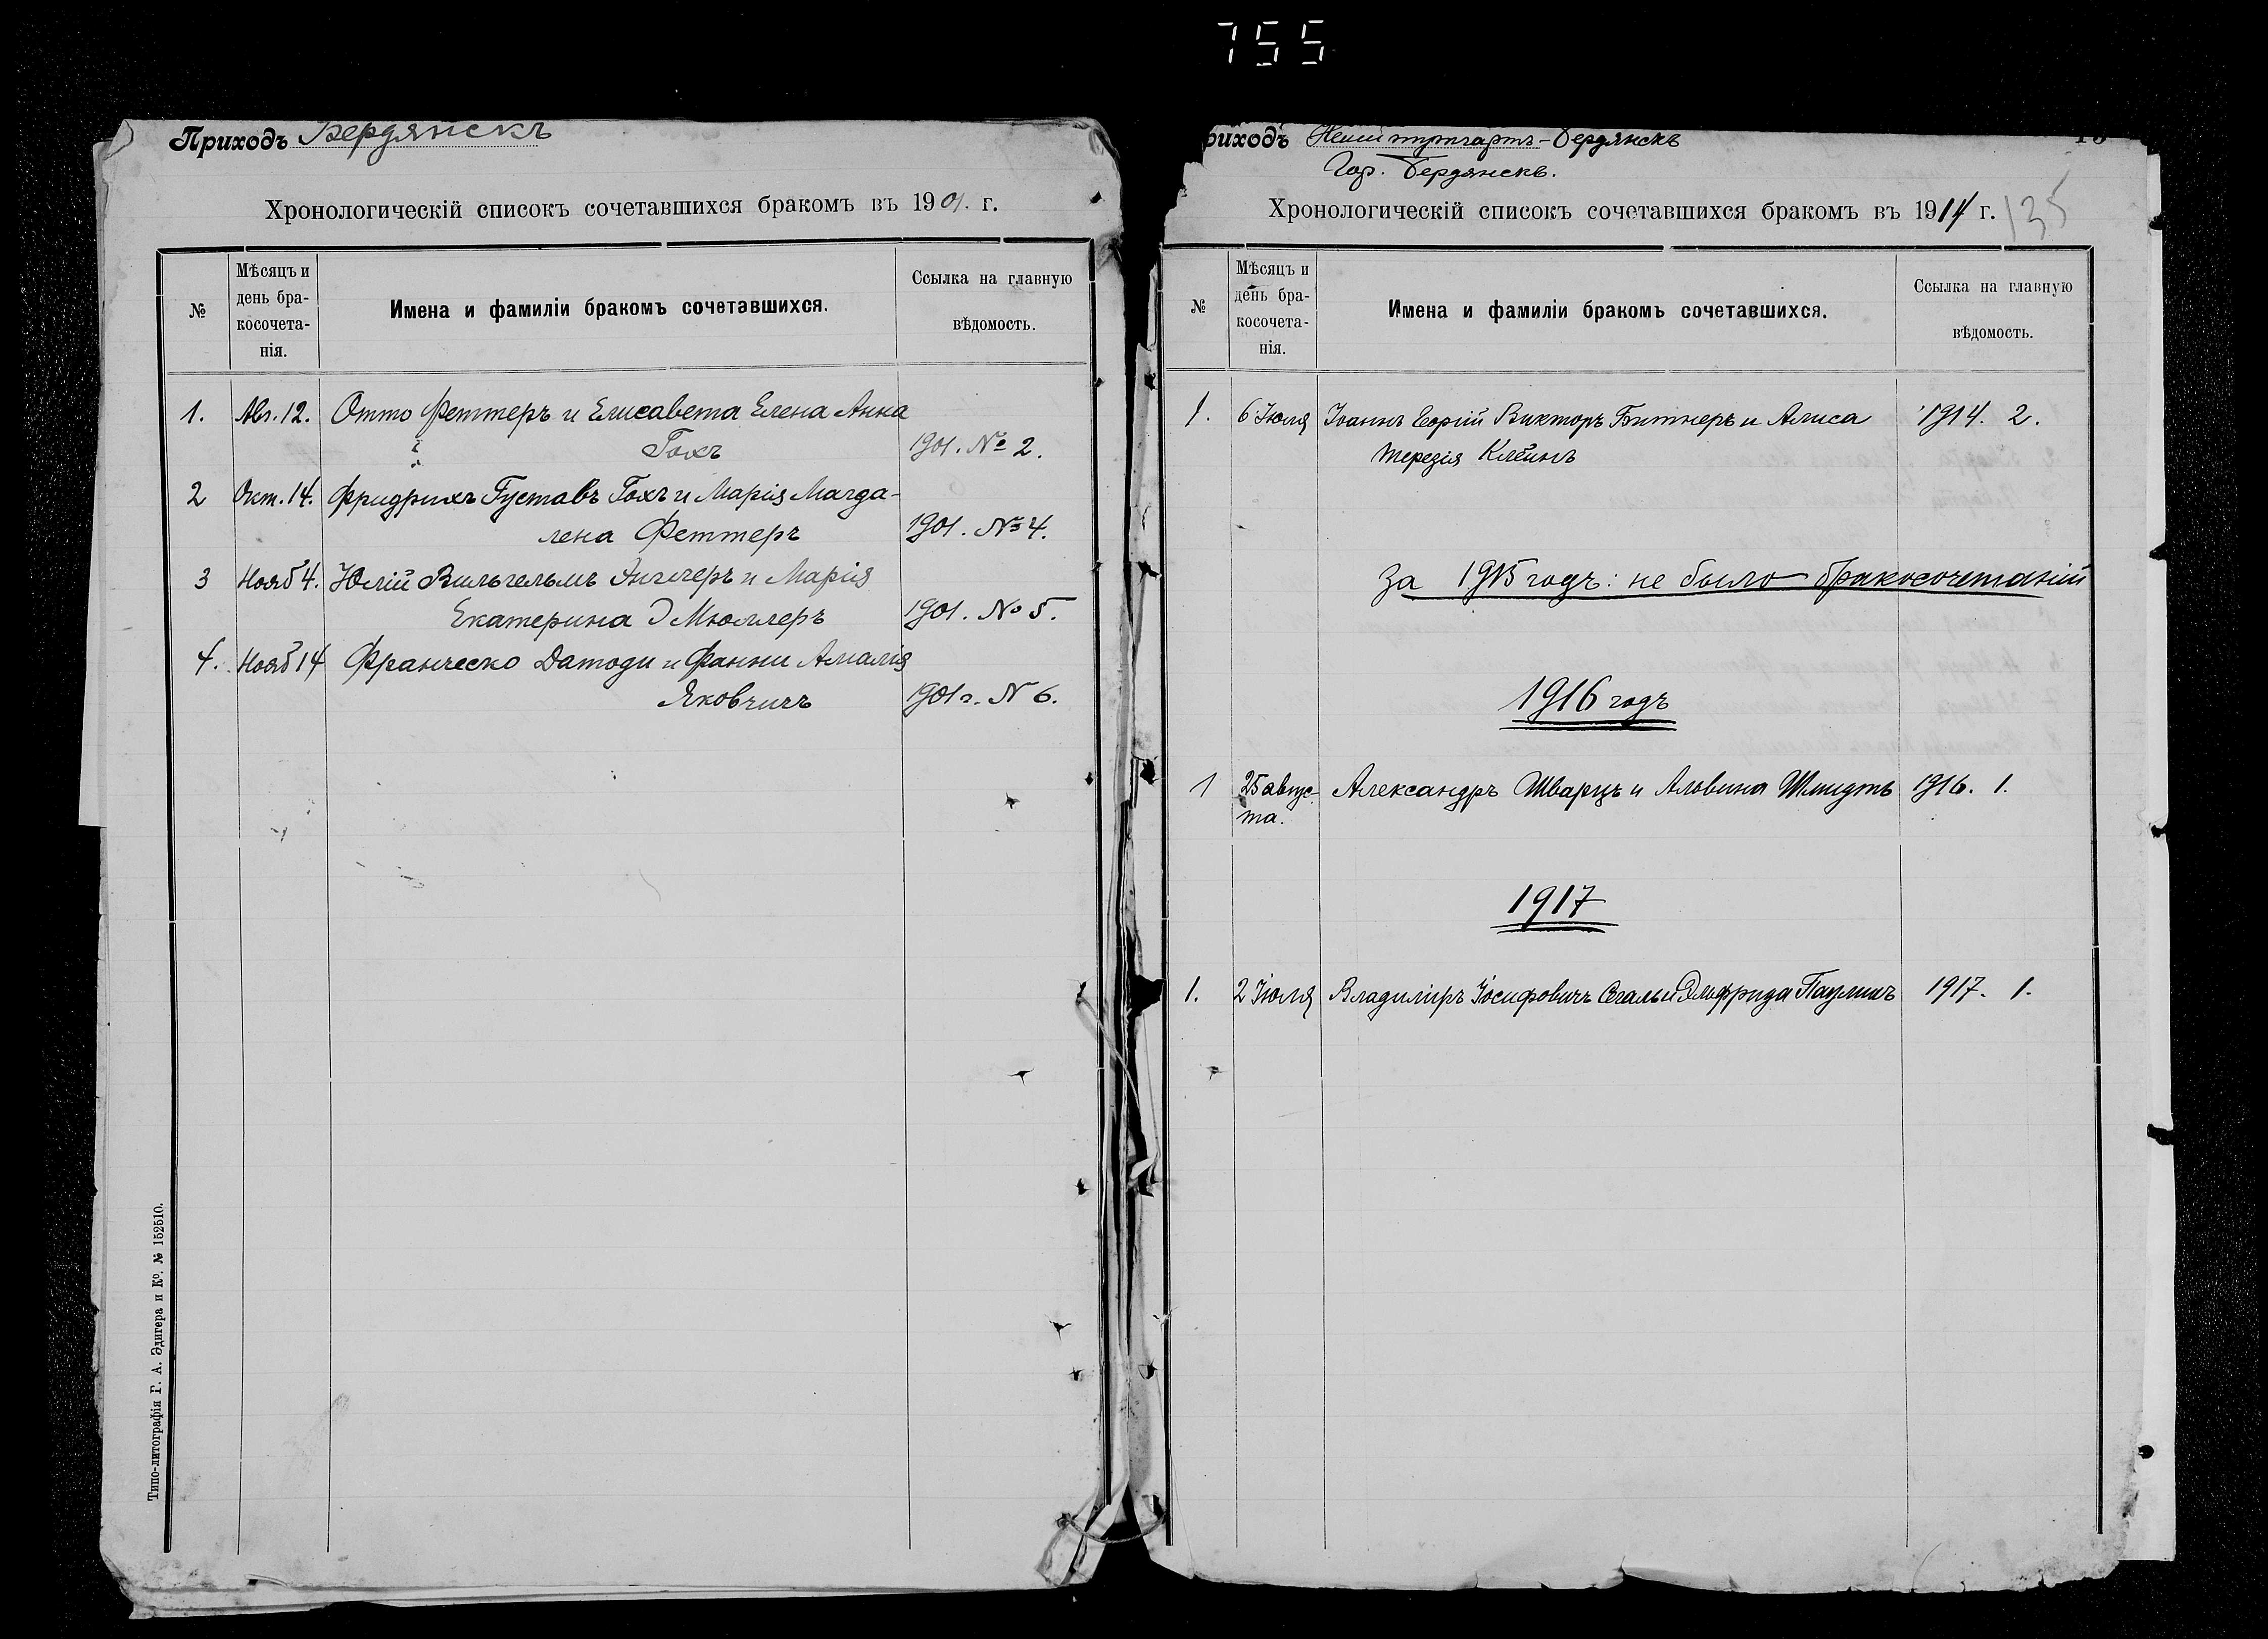 755
Приходъ Бердянскъ
Хронологическій списокъ сочетавшихся бракомъ въ 1901. г.
№
Мѣсяцъ и
день бра-
косочета-
нія.
Имена и фамиліи бракомъ сочетавшихся.
Ссылка на главную
вѣдомость.
1. Авг. 12. Отто Феттеръ и Елисавета Елена Анна
Гохъ 1901. № 2.
2 Окт. 14. Фридрихъ Густавъ Гохъ и Марія Магда-
лена Феттеръ 1901. № 4.
3 Нояб 4. Юлій Вильгельмъ и Марія
Екатерина Мюллеръ 1901. № 5.
4. Нояб 14 Франческо Датоди и Фанни Амалія
Яковчичъ 1901 г. N 6.
Типо-литографія Г. А. Эдигера и Ко. № 152510.
риходъ Нейштутгартъ-Бердянскъ
Гор. Бердянскъ.
135
Хронологическій списокъ сочетавшихся бракомъ въ 1914 г.
№
Мѣсяцъ и
день бра-
косочета-
нія.
Имена и фамиліи бракомъ сочетавшихся.
Ссылка на главную
вѣдомость.
1. 6 Іюля Іоаннъ Викторъ Битнеръ и Алиса 1914. 2.
Терезія Клейнъ
За 1915 годъ: не было бракосочетаній
1916 годъ
1 25 авгус- Александръ Шварцъ и Альвина Шмидтъ 1916. 1.
та.
1917
1. 2 Іюля Владиміръ Іосифовичъ Сегаль и Эльфрида Паулинъ 1917. 1.